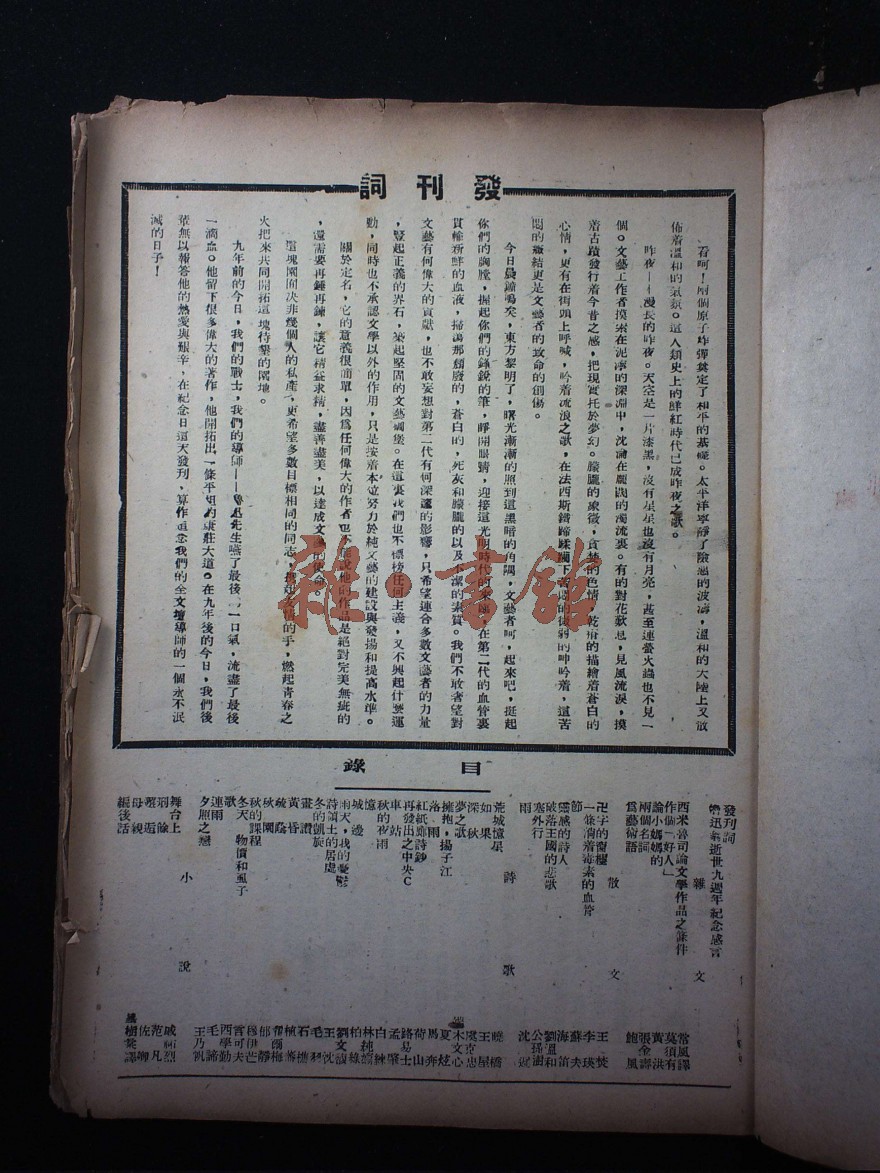 發刊詞
看呵！兩個原子炸彈奠定了和平的基礎。太平洋寧靜了險惡的波濤，溫和的大陸上又散
佈着溫和的氣氛。這人類史上的鮮紅時代已成昨夜之歌。
昨夜——漫長的昨夜。天空是一片漆黑，沒有星星也沒有月亮，甚至連螢火蟲也不見一
個。文藝工作者摸索在泥濘的深淵中，沈淪在腐濁的濁流裏。有的對花歎息，見風流淚，摸
着古蹟發行着今昔之感，把現實托於夢幻。朦朧的象徵，貪婪的色情，乾瘠的描繪着蒼白的
心情，更有在街頭上呼喊，吟着流浪之歌，在法西斯鐵蹄蹂躪下苦悶的微弱的呻吟着，這苦
悶的凝結更是文藝者的致命的創傷。
今日晨鐘鳴矣，東方黎明了，曙光漸漸的照到這黑暗的角隅，文藝者呵，起來吧，挺起
你們的胸膛，握起你們的鋒銳的筆，睜開眼睛，迎接這光明時代的來臨，在第二代的血管裏
貫輸新鮮的血液，掃蕩那頹廢的，蒼白的，死灰和朦朧的以及不潔的素質。我們不敢奢望對
文藝有何偉大的貢獻，也不敢妄想對第二代有何深邃的影響，只希望連合多數文藝者的力量
，豎起正義的界石，築起堅固的文藝碉堡。在這裏我們也不標榜任何主義，又不興起什麼運
動，同時也不承認文學以外的作用，只是按着本位努力於純文藝的建設與發揚和提高水準。
關於定名，它的意義很簡單，因爲任何偉大的作者也不能說他的作品是絕對完美無疵的
，還需要再錘再鍊，讓它精益求精，盡善盡美，以達成文藝的使命。
這塊園囿決非幾個人的私產，更希望多數目標相同的同志，携起友情的手，燃起青春之
火把來共同開拓這塊待墾的隅地。
九年前的今日，我們的戰士，我們的導師——魯迅先生嚥了最後一口氣，流盡了最後
一滴血。他留下很多偉大的著作，他開拓出一條平坦的康莊大道。在九年後的今日，我們後
輩無以報答他的熱愛與艱辛，在紀念日這天發刊，算作追念我們的全文壇導師的一個永不泯
滅的日子！
雜·書館
目錄
發刊詞
魯迅翁逝世九週年紀念感言
雜文
西米魯司論文學作品之條件 常風譯
作個「好人」 莫須有
論小媽媽的 黃洪
兩個名詞 張金壽
爲藝術語 鮑風
散文
卍字的窗櫺 王焚
一條淌着毒素的血管 李瑛
節 蘇夫
靈感的詩人 海笛
破落王國的悲歌 劉溫和
塞外行 公孫澍
雨 沈寂
詩歌
荒城憶星
如果
深秋
夢之歌
擁抱，揚子江
洛雨
紅紙廊詩鈔
再發出之中央C
車站
秋的夜雨
憶
城邊
雨天，我的憂鬱
詩領土的居處
冬的凱旋
畫讚
黃昏
疏蔭
秋園
秋的課程
冬天，物價和虱子
歌
連雨
夕照之戀
小說
舞台上
羽餘
邂逅
母親
編後話